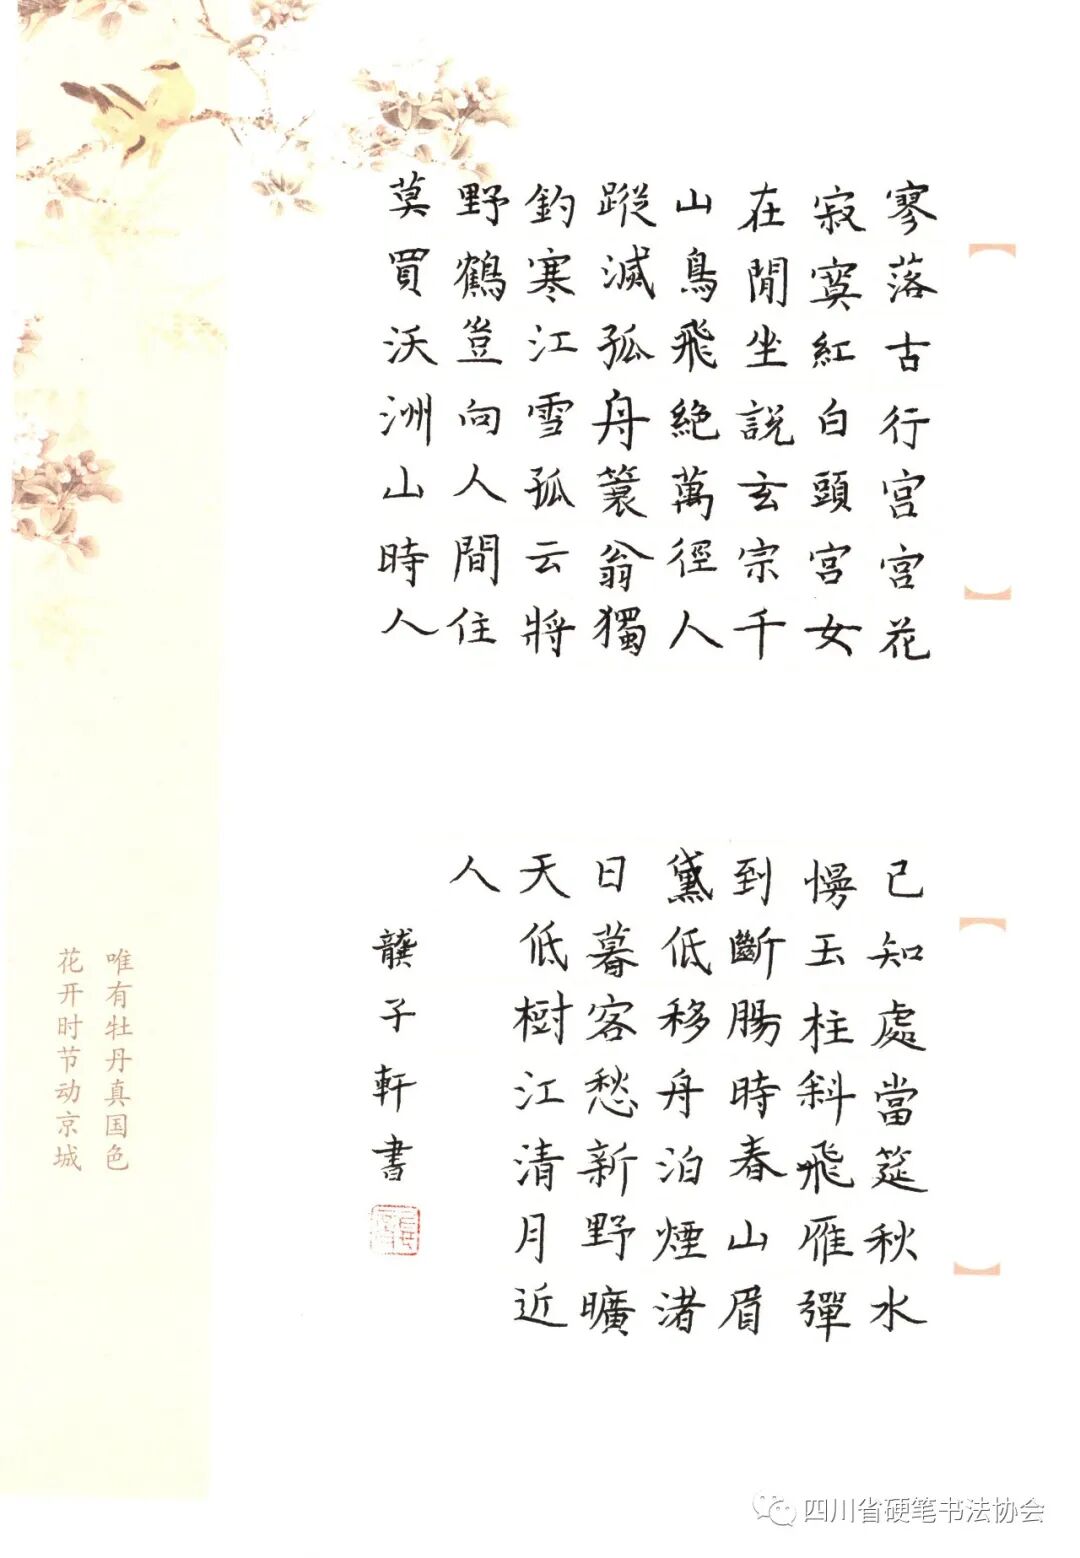 寥落古行宫宫花
寂寞紅白頭宫女
在閒坐説玄宗千
山鳥飛絶萬徑人
蹤滅孤舟簑翁獨
釣寒江雪孤云將
野鶴豈向人間住
莫買沃洲山時人
已知處當筵秋水
慢玉柱斜飛雁彈
到斷腸時春山眉
黛低移舟泊煙渚
日暮客愁新野曠
天低樹江清月近
人
龔子軒書
唯有牡丹真国色
花开时节动京城
四川省硬笔书法协会